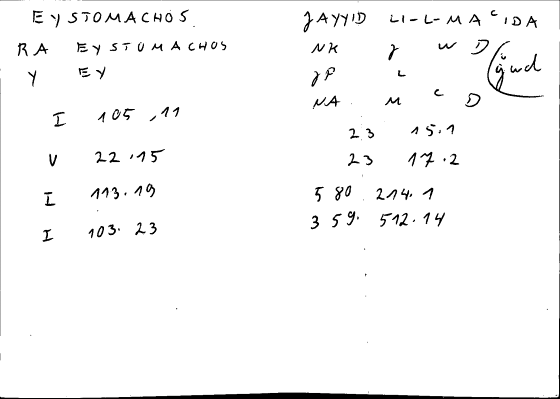 EYSTOMACHOS
RA EYSTOMACHOS
Y EY
I 105,11
V 22.15
I 113.19
I 103.23
JAYYID LI-L-MAᶜIDA
NK J W D (ǧwd
JP L
NA M ᶜ D
23 15.1
23 17.2
5 80 214.1
3 59. 512.14